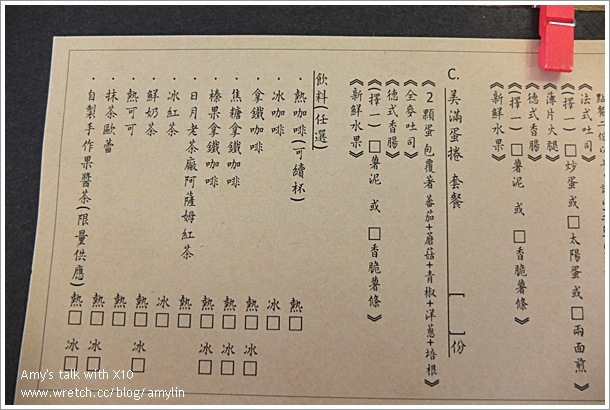 《法式吐司》
《(擇一) □炒蛋 或 □太陽蛋 或 □兩面煎》
《薄片火腿》
《德式香腸》
《(擇一) □薯泥 或 □香脆薯條》
《新鮮水果》
C. 美滿蛋捲 套餐 [ ]份
《2顆蛋 包覆著 蕃茄+蘑菇+青椒+洋蔥+培根》
《全麥吐司》
《德式香腸》
《(擇一) □薯泥 或 □香脆薯條》
《新鮮水果》
飲料(任選)
・熱咖啡(可續杯) 熱□
・冰咖啡 冰□
・拿鐵咖啡 熱□ 冰□
・焦糖拿鐵咖啡 熱□ 冰□
・榛果拿鐵咖啡 熱□ 冰□
・日月老茶廠阿薩姆紅茶 熱□
・冰紅茶 冰□
・鮮奶茶 熱□ 冰□
・熱可可 熱□
・抹茶歐蕾 熱□ 冰□
・自製手作果醬茶(限量供應) 熱□ 冰□
Amy's talk with X10
www.wretch.cc/blog/amylin